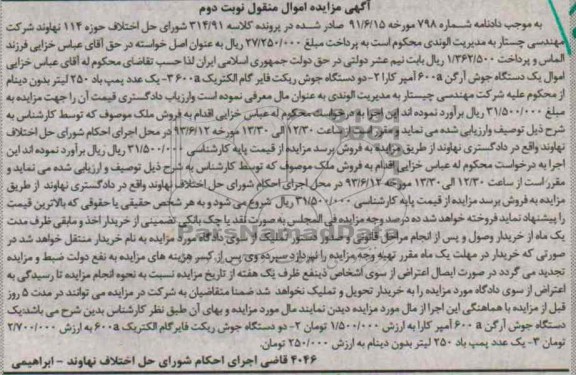 آگهی مزایده اموال منقول نوبت دوم
به موجب دادنامه شماره ۷۹۸ مورخه ۹۱/۶/۱۵ صادر شده در پرونده کلاسه ۳۱۴/۹۱ شورای حل اختلاف حوزه ۱۱۴ نهاوند شرکت
مهندسی چستار به مدیریت الوندی محکوم است به پرداخت مبلغ ۲۷/۲۵۰/۰۰۰ ریال به عنوان اصل خواسته در حق آقای عباس خزایی فرزند
الماس و پرداخت ۱/۳۶۲/۵۰۰ ریال بابت نیم عشر دولتی در حق دولت جمهوری اسلامی ایران لذا حسب تقاضای محکوم له آقای عباس خزایی
اموال یک دستگاه جوش آرگن ۶۰۰a آمپر کارا ۲- دو دستگاه جوش ریکت فایر گام الکتریک ۶۰۰a ۳- یک عدد پمپ باد ۲۵۰ لیتر بدون دینام
از محکوم علیه شرکت مهندسی چیستار به مدیریت الوندی به عنوان مال معرفی نموده است وارزیاب دادگستری قیمت آن را جهت مزایده به
مبلغ ۳۱/۵۰۰/۰۰۰ ریال برآورد نموده اند این اجرا به درخواست محکوم له عباس خزایی اقدام به فروش ملک موصوف که توسط کارشناس به
شرح ذیل توصیف وارزیابی شده می نماید و مقرر است از ساعت ۱۲/۳۰ الی ۱۳/۳۰ مورخه ۹۳/۶/۱۲ در محل اجرای احکام شورای حل اختلاف
نهاوند واقع در دادگستری نهاوند از طریق مزایده به فروش برسد مزایده از قیمت پایه کارشناسی ۳۱/۵۰۰/۰۰۰ ریال ریال برآورد نموده اند این
اجرا به درخواست محکوم له عباس خزایی اقدام به فروش ملک موصوف که توسط کارشناس به شرح ذیل توصیف و ارزیابی شده می نماید و
مقرر است از ساعت ۱۲/۳۰ الی ۱۳/۳۰ مورخه ۹۳/۶/۱۲ در محل اجرای احکام شورای حل اختلاف نهاوند واقع در دادگستری نهاوند از طریق
مزایده به فروش برسد مزایده از قیمت پایه کارشناسی ۳۱/۵۰۰/۰۰۰ ریال شروع می شود و به هر شخص حقیقی یا حقوقی که بالاترین قیمت
را پیشنهاد نماید فروخته خواهد شد ده درصد وجه مزایده فی المجلس به صورت نقد یا چک بانکی تضمینی از خریدار اخذ و مابقی ظرف مدت
یک ماه از خریدار وصول و پس از انجام مراحل قانونی و صدور دستور تملیک از سوی دادگاه مورد مزایده به نام خریدار منتقل خواهد شد در
صورتی که خریدار در مهلت یک ماه مقرر بهیه وجه مزایده را نپردازد سپرده وی پس از کسر هزینه های مزایده به نفع دولت ضبط و مزایده
تجدید می گردد در صورت ایصال اعتراض از سوی اشخاص ذینفع ظرف یک هفته از تاریخ مزایده نسبت به نحوه انجام مزایده تا رسیدگی به
اعتراض از سوی دادگاه مورد مزایده را به خریدار تحویل و تملیک نخواهد شد ضمنا متقاضیان به شرکت در مزایده می توانند در مدت ۵ روز
قبل از مزایده با هماهنگی این اجرا از مال مورد مزایده دیدن نمایند مال مورد مزایده و بهای آن طبق نظر کارشناس بدین شرح می باشد:یک
دستگاه جوش آرگن ۶۰۰a آمپر کارا به ارزش ۱/۵۰۰/۰۰۰ تومان ۲- دو دستگاه جوش ریکت فایرگام الکتریک ۶۰۰a به ارزش ۲/۷۰۰/۰۰۰
تومان ۳- یک عدد پمپ باد ۲۵۰ لیتر بدون دینام به ارزش ۲۵۰/۰۰۰ تومان.
۴۰۴۶ قاضی اجرای احکام شورای حل اختلاف نهاوند - ابراهیمی